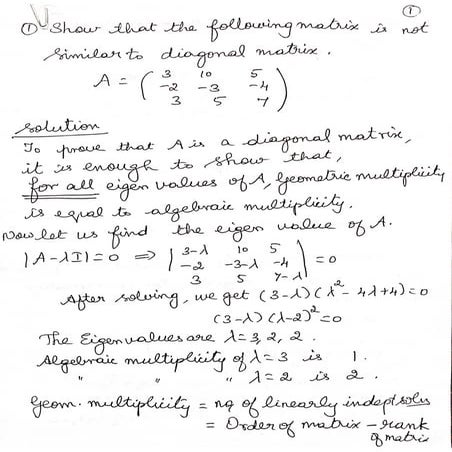 ①
① Show that the following matrix is not
similar to diagonal matrix.
A = ( 3 10 5
-2 -3 -4
3 5 7 )
Solution
To prove that A is a diagonal matrix,
it is enough to show that,
for all eigen values of A, Geometric multiplicity
is equal to algebraic multiplicity.
Now let us find the eigen value of A.
|A-λI|=0 ⇒ | 3-λ 10 5
-2 -3-λ -4
3 5 7-λ | = 0
After solving, we get (3-λ)(λ²-4λ+4)=0
(3-λ)(λ-2)²=0
The Eigenvalues are λ=3, 2, 2.
Algebraic multiplicity of λ=3 is 1.
" " " λ=2 is 2.
Geom. multiplicity = no of linearly indept solns
= Order of matrix - rank
of matrix